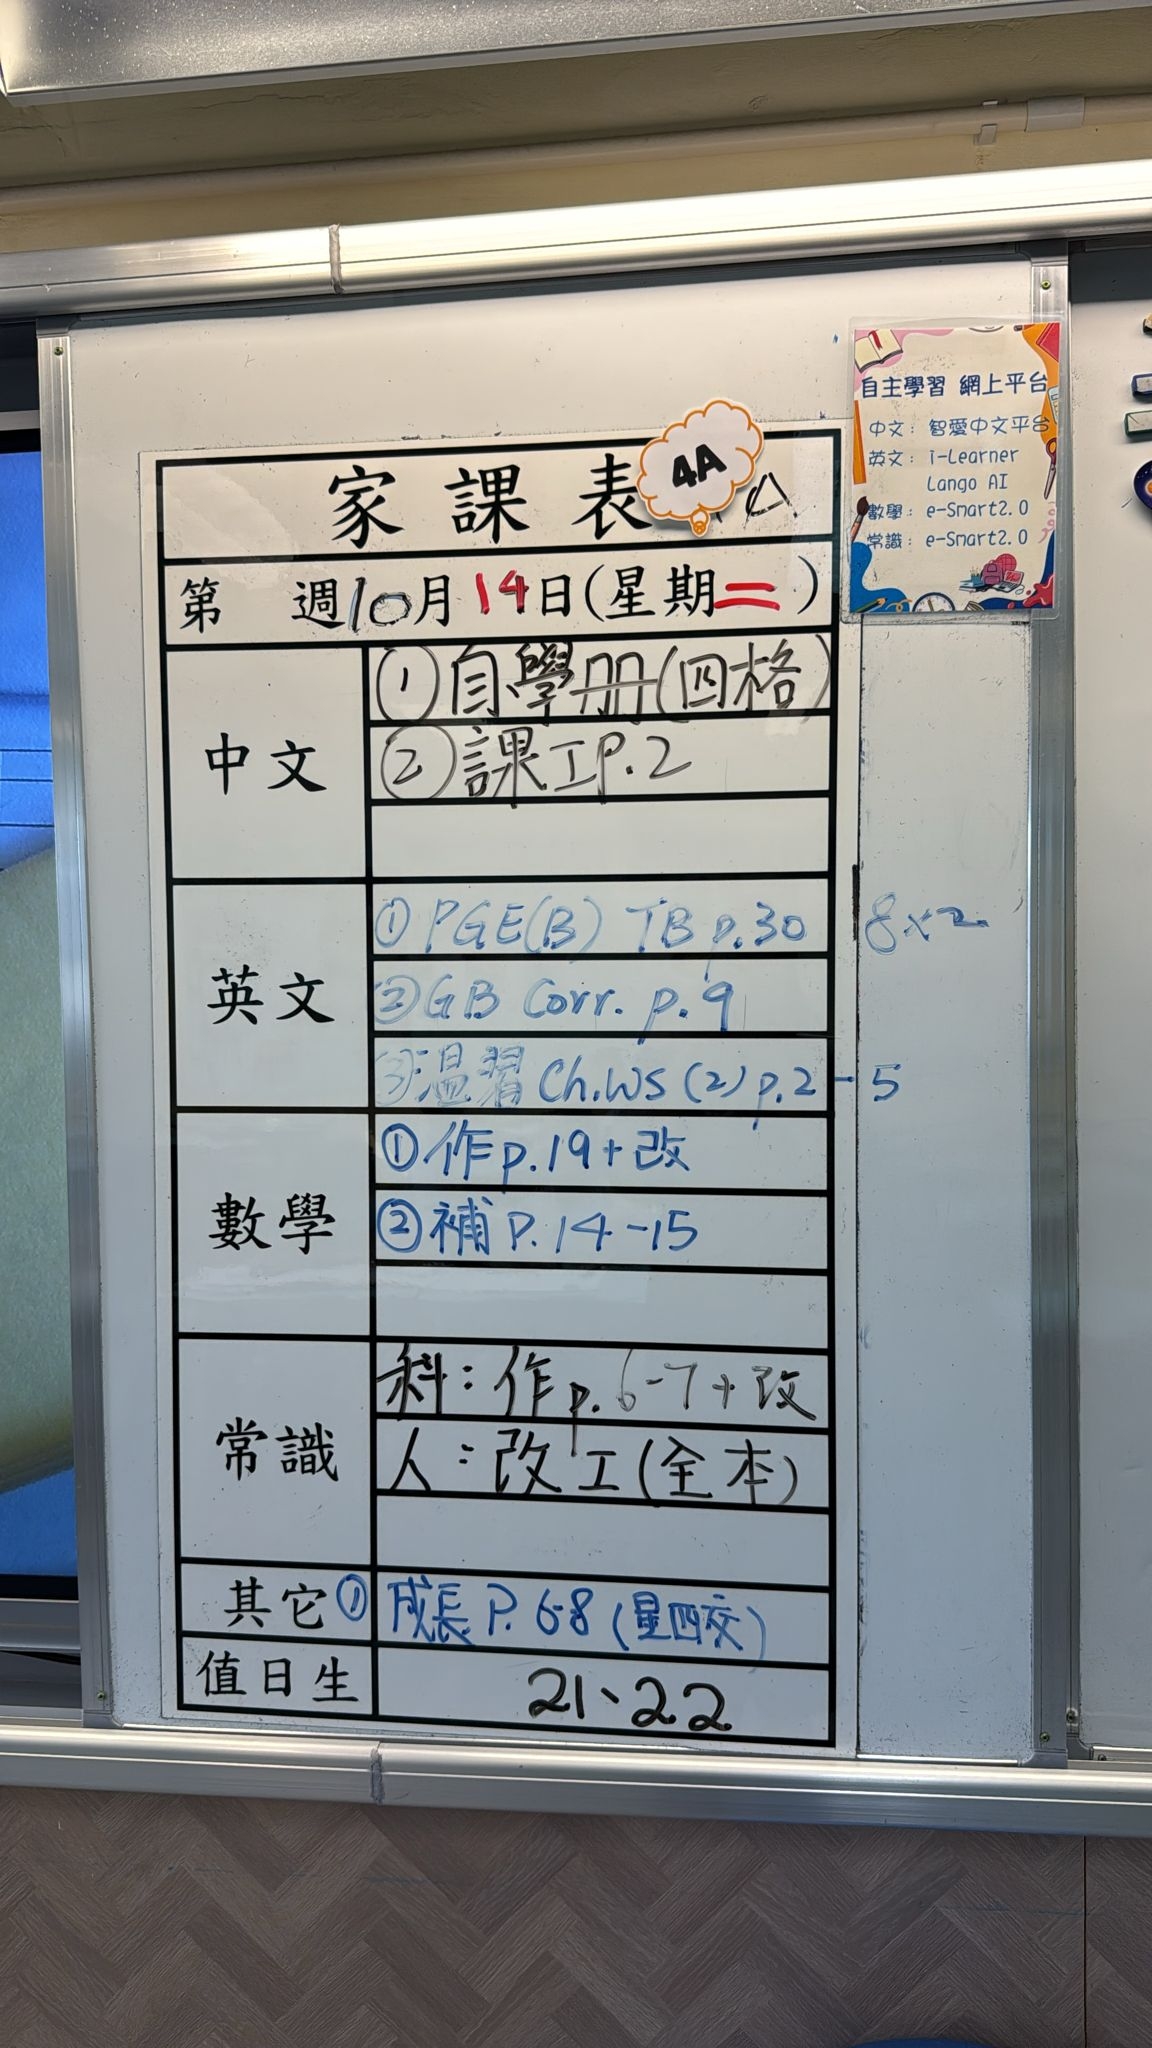 家課表
4A
第 週10月14日(星期二)
中文
①自學册(四格)
②課工P.2
英文
① PGE(B) TB p.30 8x2
② GB Corr. p.9
③溫習 Ch.WS (2) p.2-5
數學
①作p.19+改
②補P.14-15
常識
科:作p.6-7+改
人:改工(全本)
其它① 成長P.6-8(星四交)
值日生 21、22
自主學習 網上平台
中文:智愛中文平台
英文:i-Learner
Lango AI
數學:e-Smart2.0
常識:e-Smart2.0